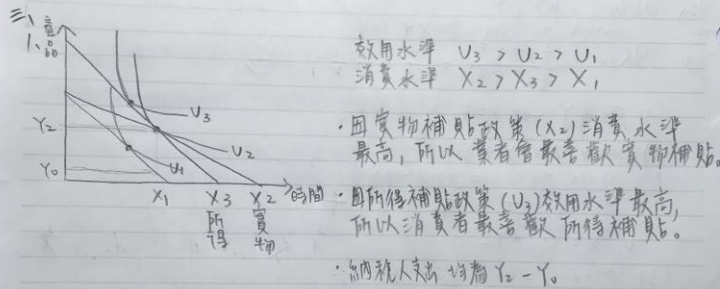 三、
1、
Y₂
Y₀
X₁
X₃
X₂
時間
U₃
U₂
U₁
所得
實物
效用水準 U₃ > U₂ > U₁
消費水準 X₂ > X₃ > X₁
・因實物補貼政策(X₂)消費水準
最高,所以業者會最喜歡實物補貼。
・因所得補貼政策(U₃)效用水準最高,
所以消費者最喜歡所得補貼。
・納稅人支出均為 Y₂ - Y₀